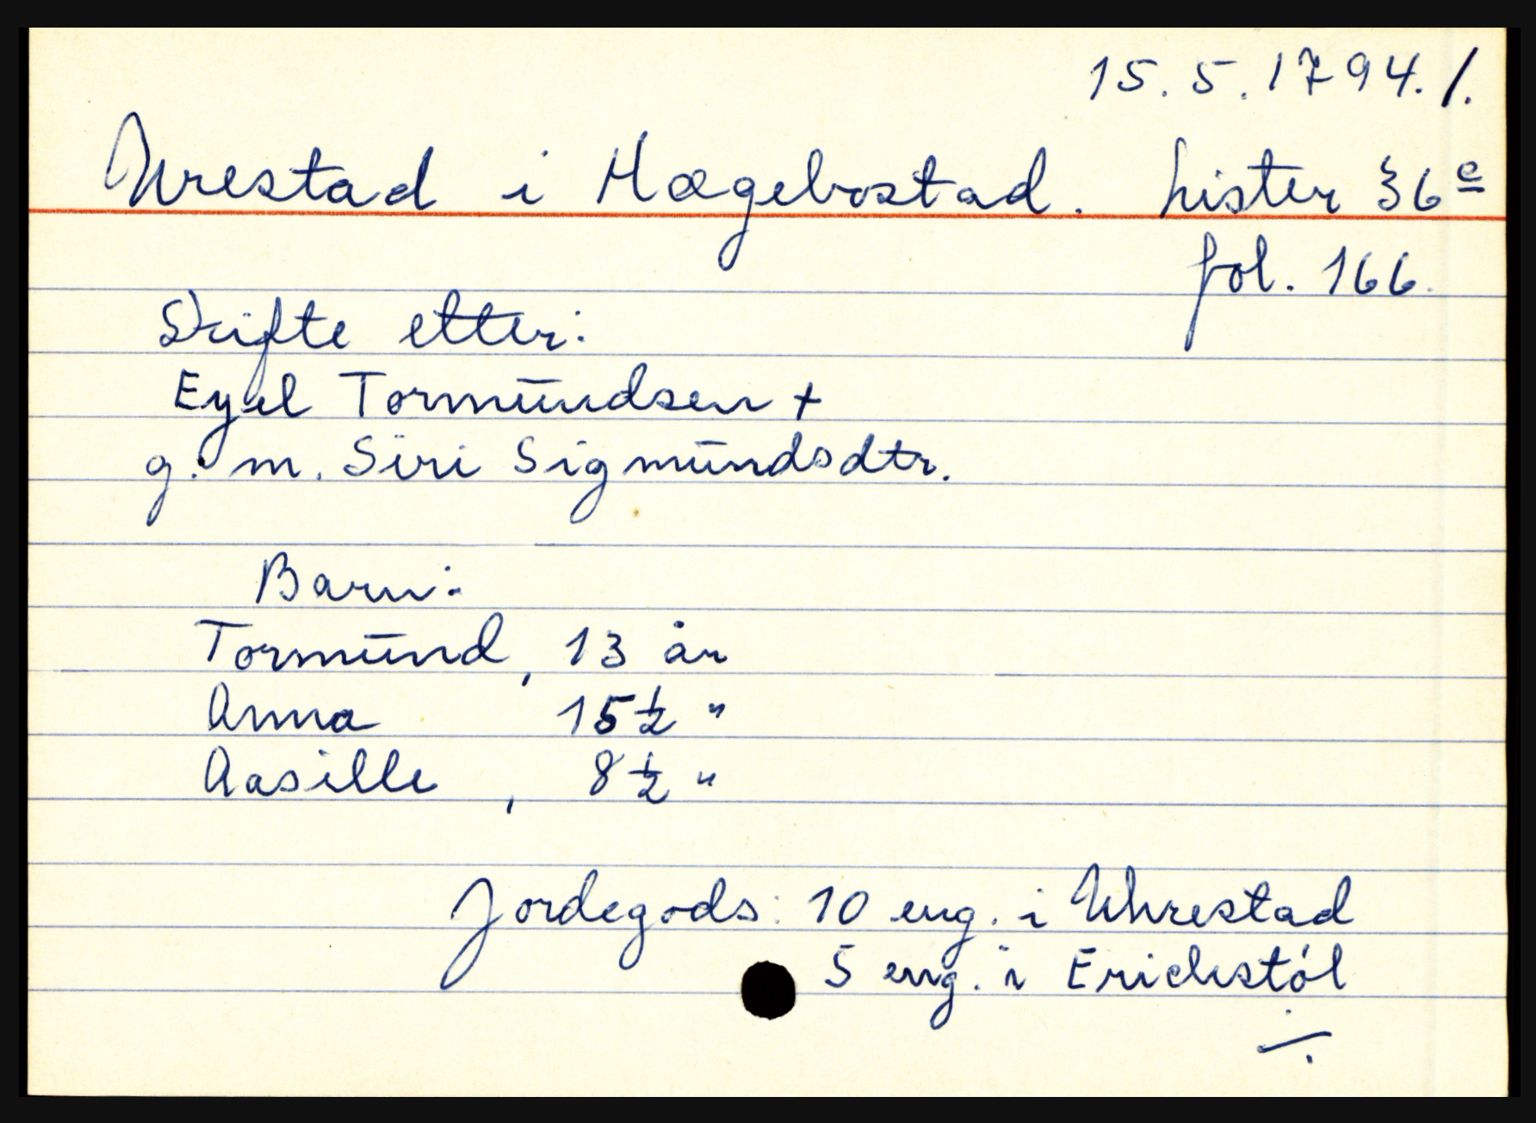 15. 5. 1794. /.
Urestad i Hægebostad. Lister 36 e
fol. 166.
Skifte etter:
Eyel Tormūndsen +
g. m. Siri Sigmūndsdtr.
Barn:
Tormūnd, 13 år
Anna 15½ "
Aasille, 8½ "
Jordegods: 10 eng. i Uhrestad
5 eng. i Erickstól